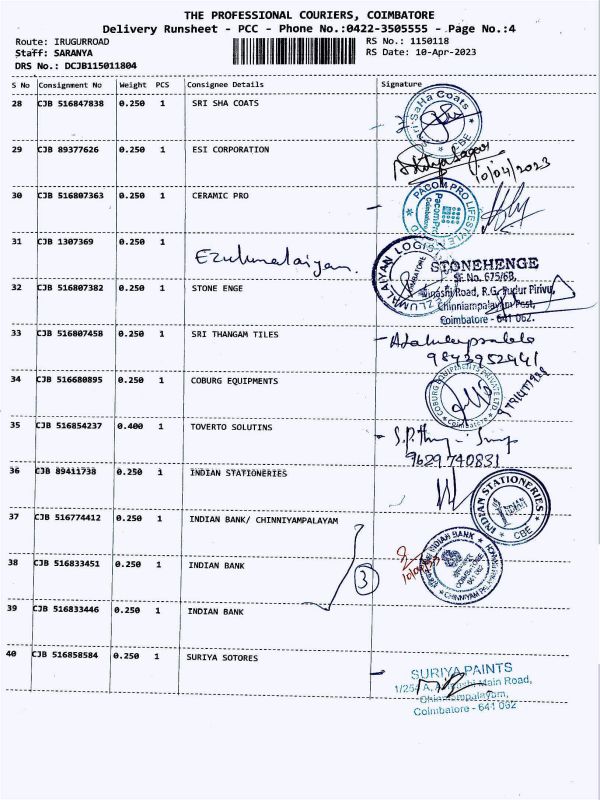 THE PROFESSIONAL COURIERS, COIMBATORE
Delivery Runsheet - PCC - Phone No.:0422-3505555 - Page No.:4
Route: IRUGURROAD RS No.: 1150118
Staff: SARANYA RS Date: 10-Apr-2023
DRS No.: DCJB115011804
S No Consignment No Weight PCS Consignee Details Signature
28 CJB 516847838 0.250 1 SRI SHA COATS
Sri SaHa Coats CBE
29 CJB 89377626 0.250 1 ESI CORPORATION
10/04/2023
30 CJB 516807363 0.250 1 CERAMIC PRO
PACOM PRO LIFESTYLE
PacomPro
Coimbatore
31 CJB 1307369 0.250 1
Ezulumalaiyan.
EZULUMALAIYAN LOGIS
STONEHENGE
SF.No. 675/6B,
Road, R.G. Pudur Pirivu,
Chinniampalayam Post,
Coimbatore - 641 062.
32 CJB 516807382 0.250 1 STONE ENGE
33 CJB 516807458 0.250 1 SRI THANGAM TILES
9843952941
34 CJB 516680895 0.250 1 COBURG EQUIPMENTS
COBURG EQUIPMENTS PRIVATE LTD
Coimbatore
35 CJB 516854237 0.400 1 TOVERTO SOLUTINS
9629740831
36 CJB 89411738 0.250 1 INDIAN STATIONERIES
INDIAN STATIONERIES
CBE
37 CJB 516774412 0.250 1 INDIAN BANK/ CHINNIYAMPALAYAM
INDIAN BANK
38 CJB 516833451 0.250 1 INDIAN BANK
3
39 CJB 516833446 0.250 1 INDIAN BANK
40 CJB 516858584 0.250 1 SURIYA SOTORES
SURIYA PAINTS
Main Road,
Coimbatore - 641 062